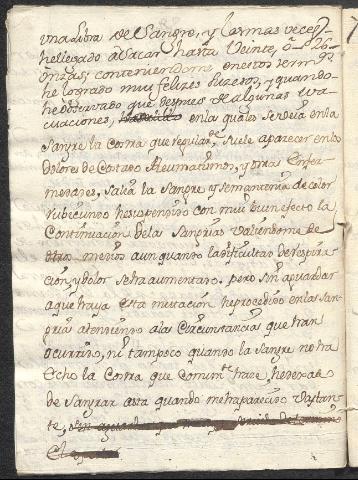 una Libra de Sangre, y las mas veces
he llegado à Sacar hasta Veinte, ò
ònzas; conteniendome en estos term.s
he logrado muy felizes suzesos, y quando
he observado que despues de algunas va
cuaciones, en las quales se dexa en la
sangre la costra que regular.te suele aparecer en los
dolores de Costado Reumatismos, y otras Enfer
medades, salia la Sangre y se mantenia de color
rubicundo he suspendido con muy buen efecto la
Continuacion de las Sangrias valiendome de
otros menos aun quando la dificultad de respira
cion y dolor se ha aumentado. pero sin aguardar
a que haya esta mutacion he procedido en las San
grias atendiendo a las Circunstancias que han
ocurrido, ni tampoco quando la Sangre no tra
echo la Costra que comunm.te trae, he dexado
de Sangrar asta quando me ha parecido bastan
te,